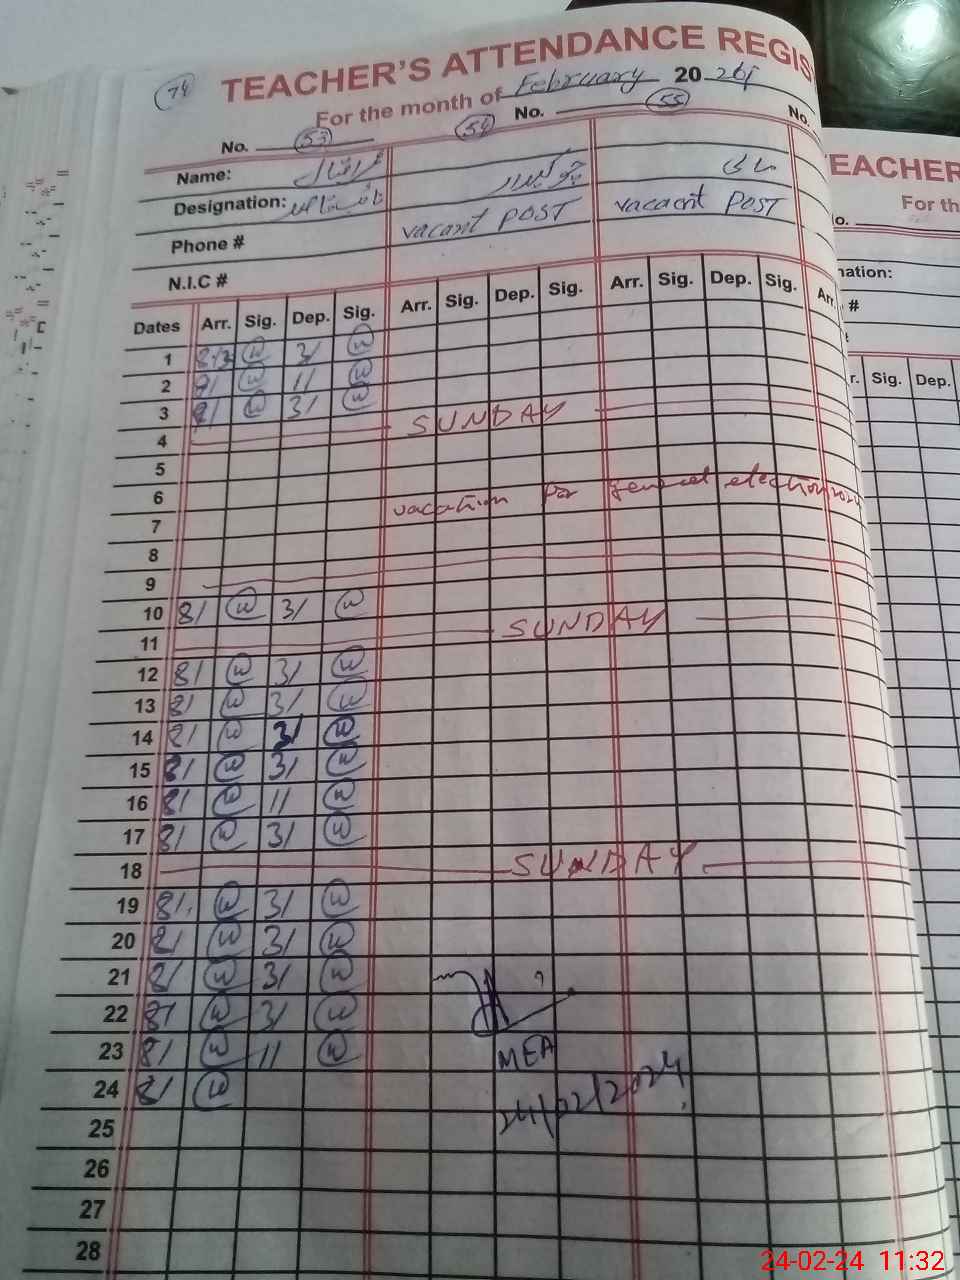 74
TEACHER'S ATTENDANCE REGIS
For the month of February 20
No. 53 54 No. 55 No.
Name: چوکیدار مالی
Designation: نائب قاصد vacant POST vacacnt POST
Phone #
N.I.C #
Dates Arr. Sig. Dep. Sig. Arr. Sig. Dep. Sig. Arr. Sig. Dep. Sig. Arr.
1 3/
2 8/ 11
3 8/ 3/
4 SUNDAY
5
6 vacation for general election 2024
7
8
9
10 8/ 3/
11 SUNDAY
12 8/ 3/
13 8/ 3/
14 8/ 3/
15 8/ 3/
16 8/ 11
17 8/ 3/
18 SUNDAY
19 8/ 3/
20 8/ 3/
21 8/ 3/
22 8/ 3/
23 8/ 11
MEA
24 8/
24/02/2024
25
26
27
28
EACHER
For th
o.
nation:
#
r. Sig. Dep.
24-02-24 11:32